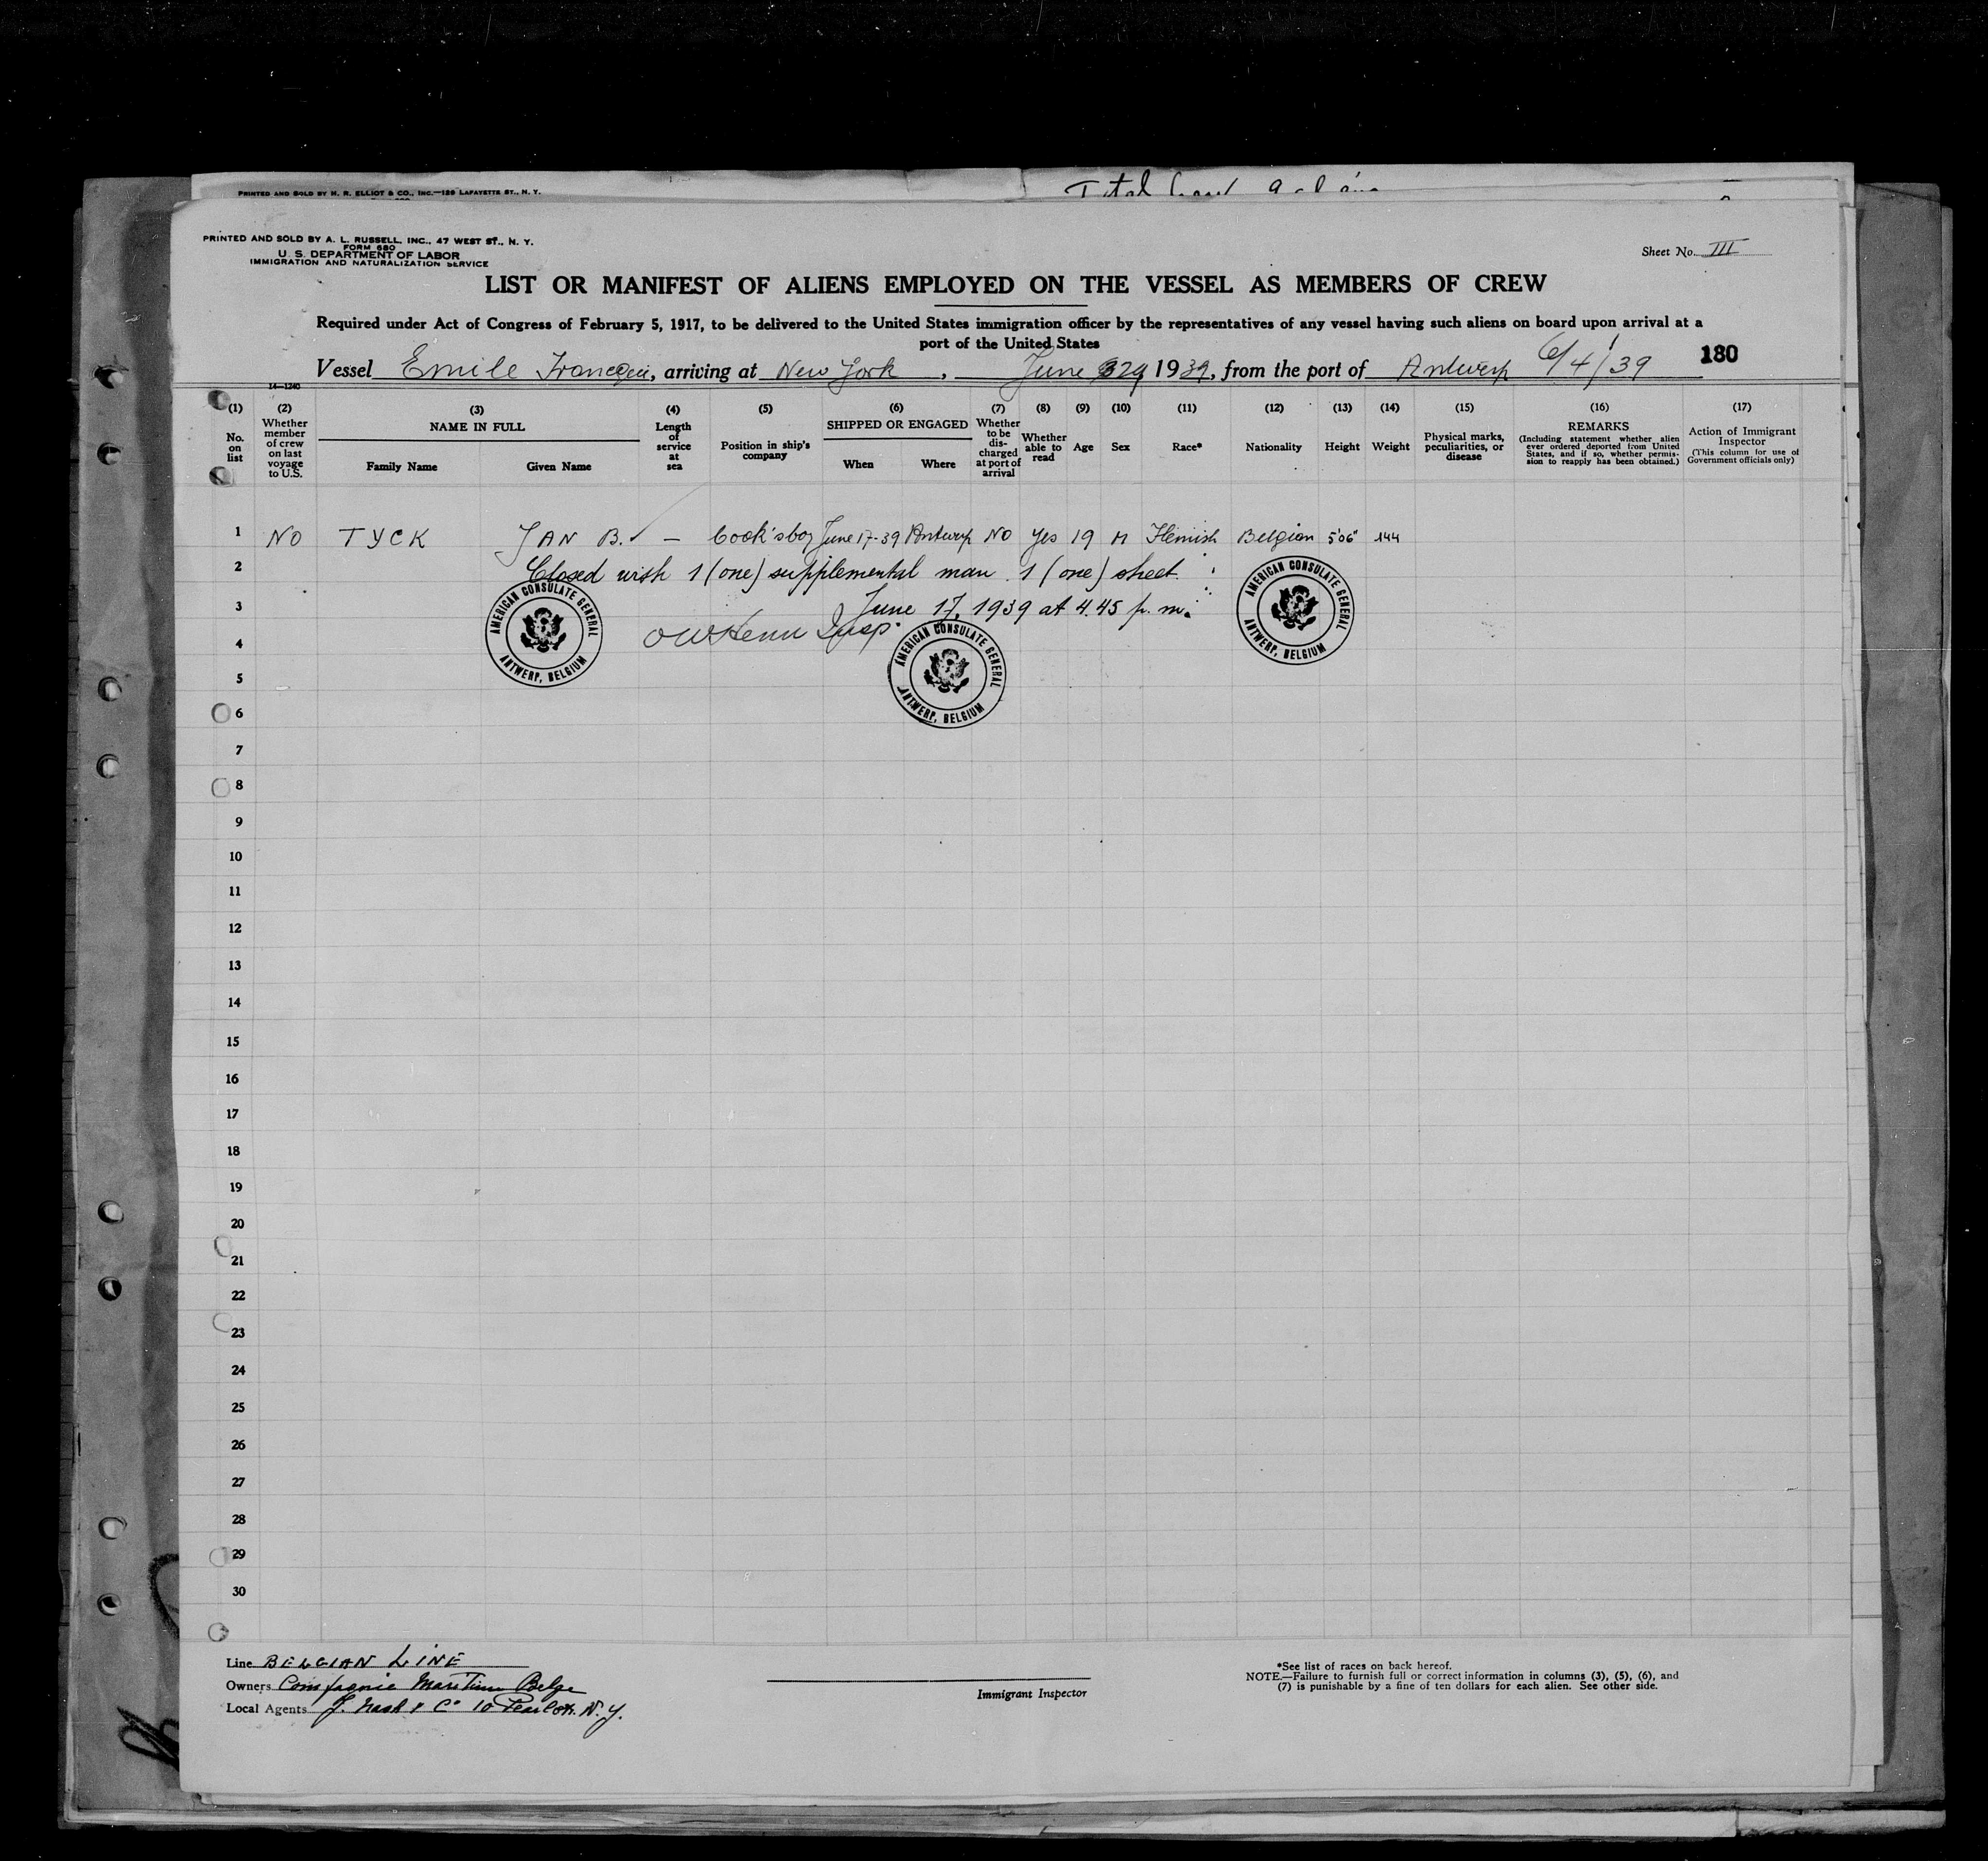 PRINTED AND SOLD BY H. R. ELLIOT & CO., INC.—129 LAFAYETTE ST., N. Y.
Total
PRINTED AND SOLD BY A. L. RUSSELL, INC., 47 WEST ST., N. Y.
FORM 680
U. S. DEPARTMENT OF LABOR
IMMIGRATION AND NATURALIZATION SERVICE
Sheet No. III
LIST OR MANIFEST OF ALIENS EMPLOYED ON THE VESSEL AS MEMBERS OF CREW
Required under Act of Congress of February 5, 1917, to be delivered to the United States immigration officer by the representatives of any vessel having such aliens on board upon arrival at a
port of the United States
Vessel Emile Francqui, arriving at New York, June 29 1939, from the port of Antwerp 6/4/39 180
14—1240
(1) (2) (3) (4) (5) (6) (7) (8) (9) (10) (11) (12) (13) (14) (15) (16) (17)
No. on list
Whether member of crew on last voyage to U.S.
NAME IN FULL
Family Name Given Name
Length of service at sea
Position in ship's company
SHIPPED OR ENGAGED
When Where
Whether to be discharged at port of arrival
Whether able to read
Age
Sex
Race*
Nationality
Height
Weight
Physical marks, peculiarities, or disease
REMARKS
(Including statement whether alien ever ordered deported from United States, and if so, whether permission to reapply has been obtained.)
Action of Immigrant Inspector
(This column for use of Government officials only)
1 NO TYCK JAN B. – Cook's boy June 17-39 Antwerp NO Yes 19 M Flemish Belgian 5'06" 144
2 Closed with 1 (one) supplemental man. 1 (one) sheet.
3 June 17, 1939 at 4.45 p.m.
4 Insp.
AMERICAN CONSULATE GENERAL
ANTWERP, BELGIUM
AMERICAN CONSULATE GENERAL
ANTWERP, BELGIUM
AMERICAN CONSULATE GENERAL
ANTWERP, BELGIUM
5
6
7
8
9
10
11
12
13
14
15
16
17
18
19
20
21
22
23
24
25
26
27
28
29
30
Line BELGIAN LINE
Owners Compagnie Maritime Belge
Local Agents J. Nash & Co 10 Pearl str. N. Y.
Immigrant Inspector
*See list of races on back hereof.
NOTE.—Failure to furnish full or correct information in columns (3), (5), (6), and
(7) is punishable by a fine of ten dollars for each alien. See other side.